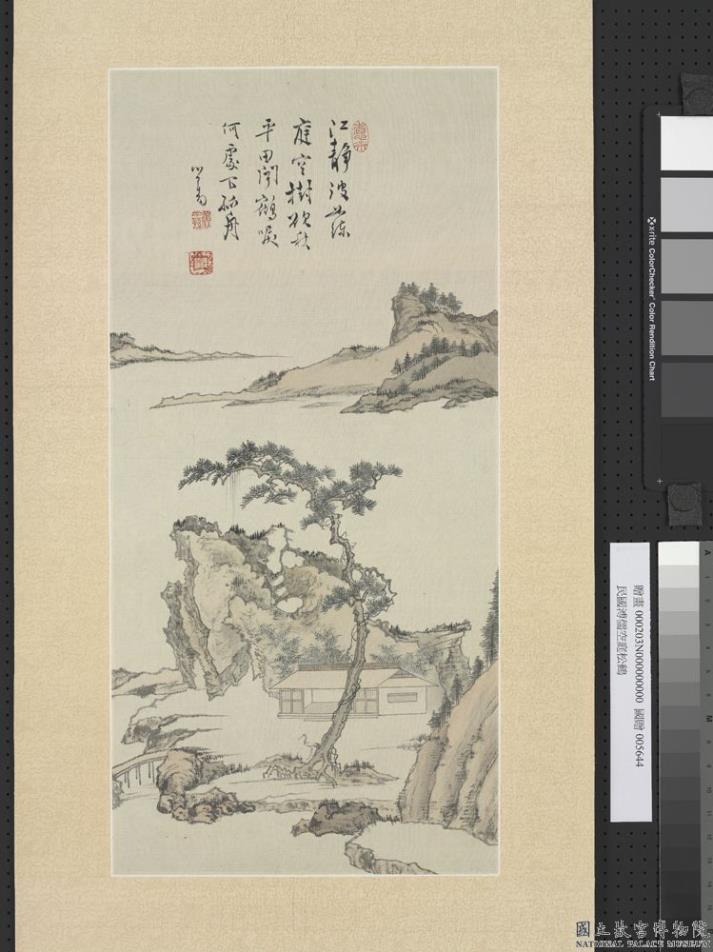 江靜波
庭空樹欲秋
平田聞鶴唳
何處下孤舟
心畬
x-rite ColorChecker® Color Rendition Chart
贈畫 000203N000000000 國贈 005644
民國溥儒空庭松鶴
A
M
國立故宮博物院
NATIONAL PALACE MUSEUM